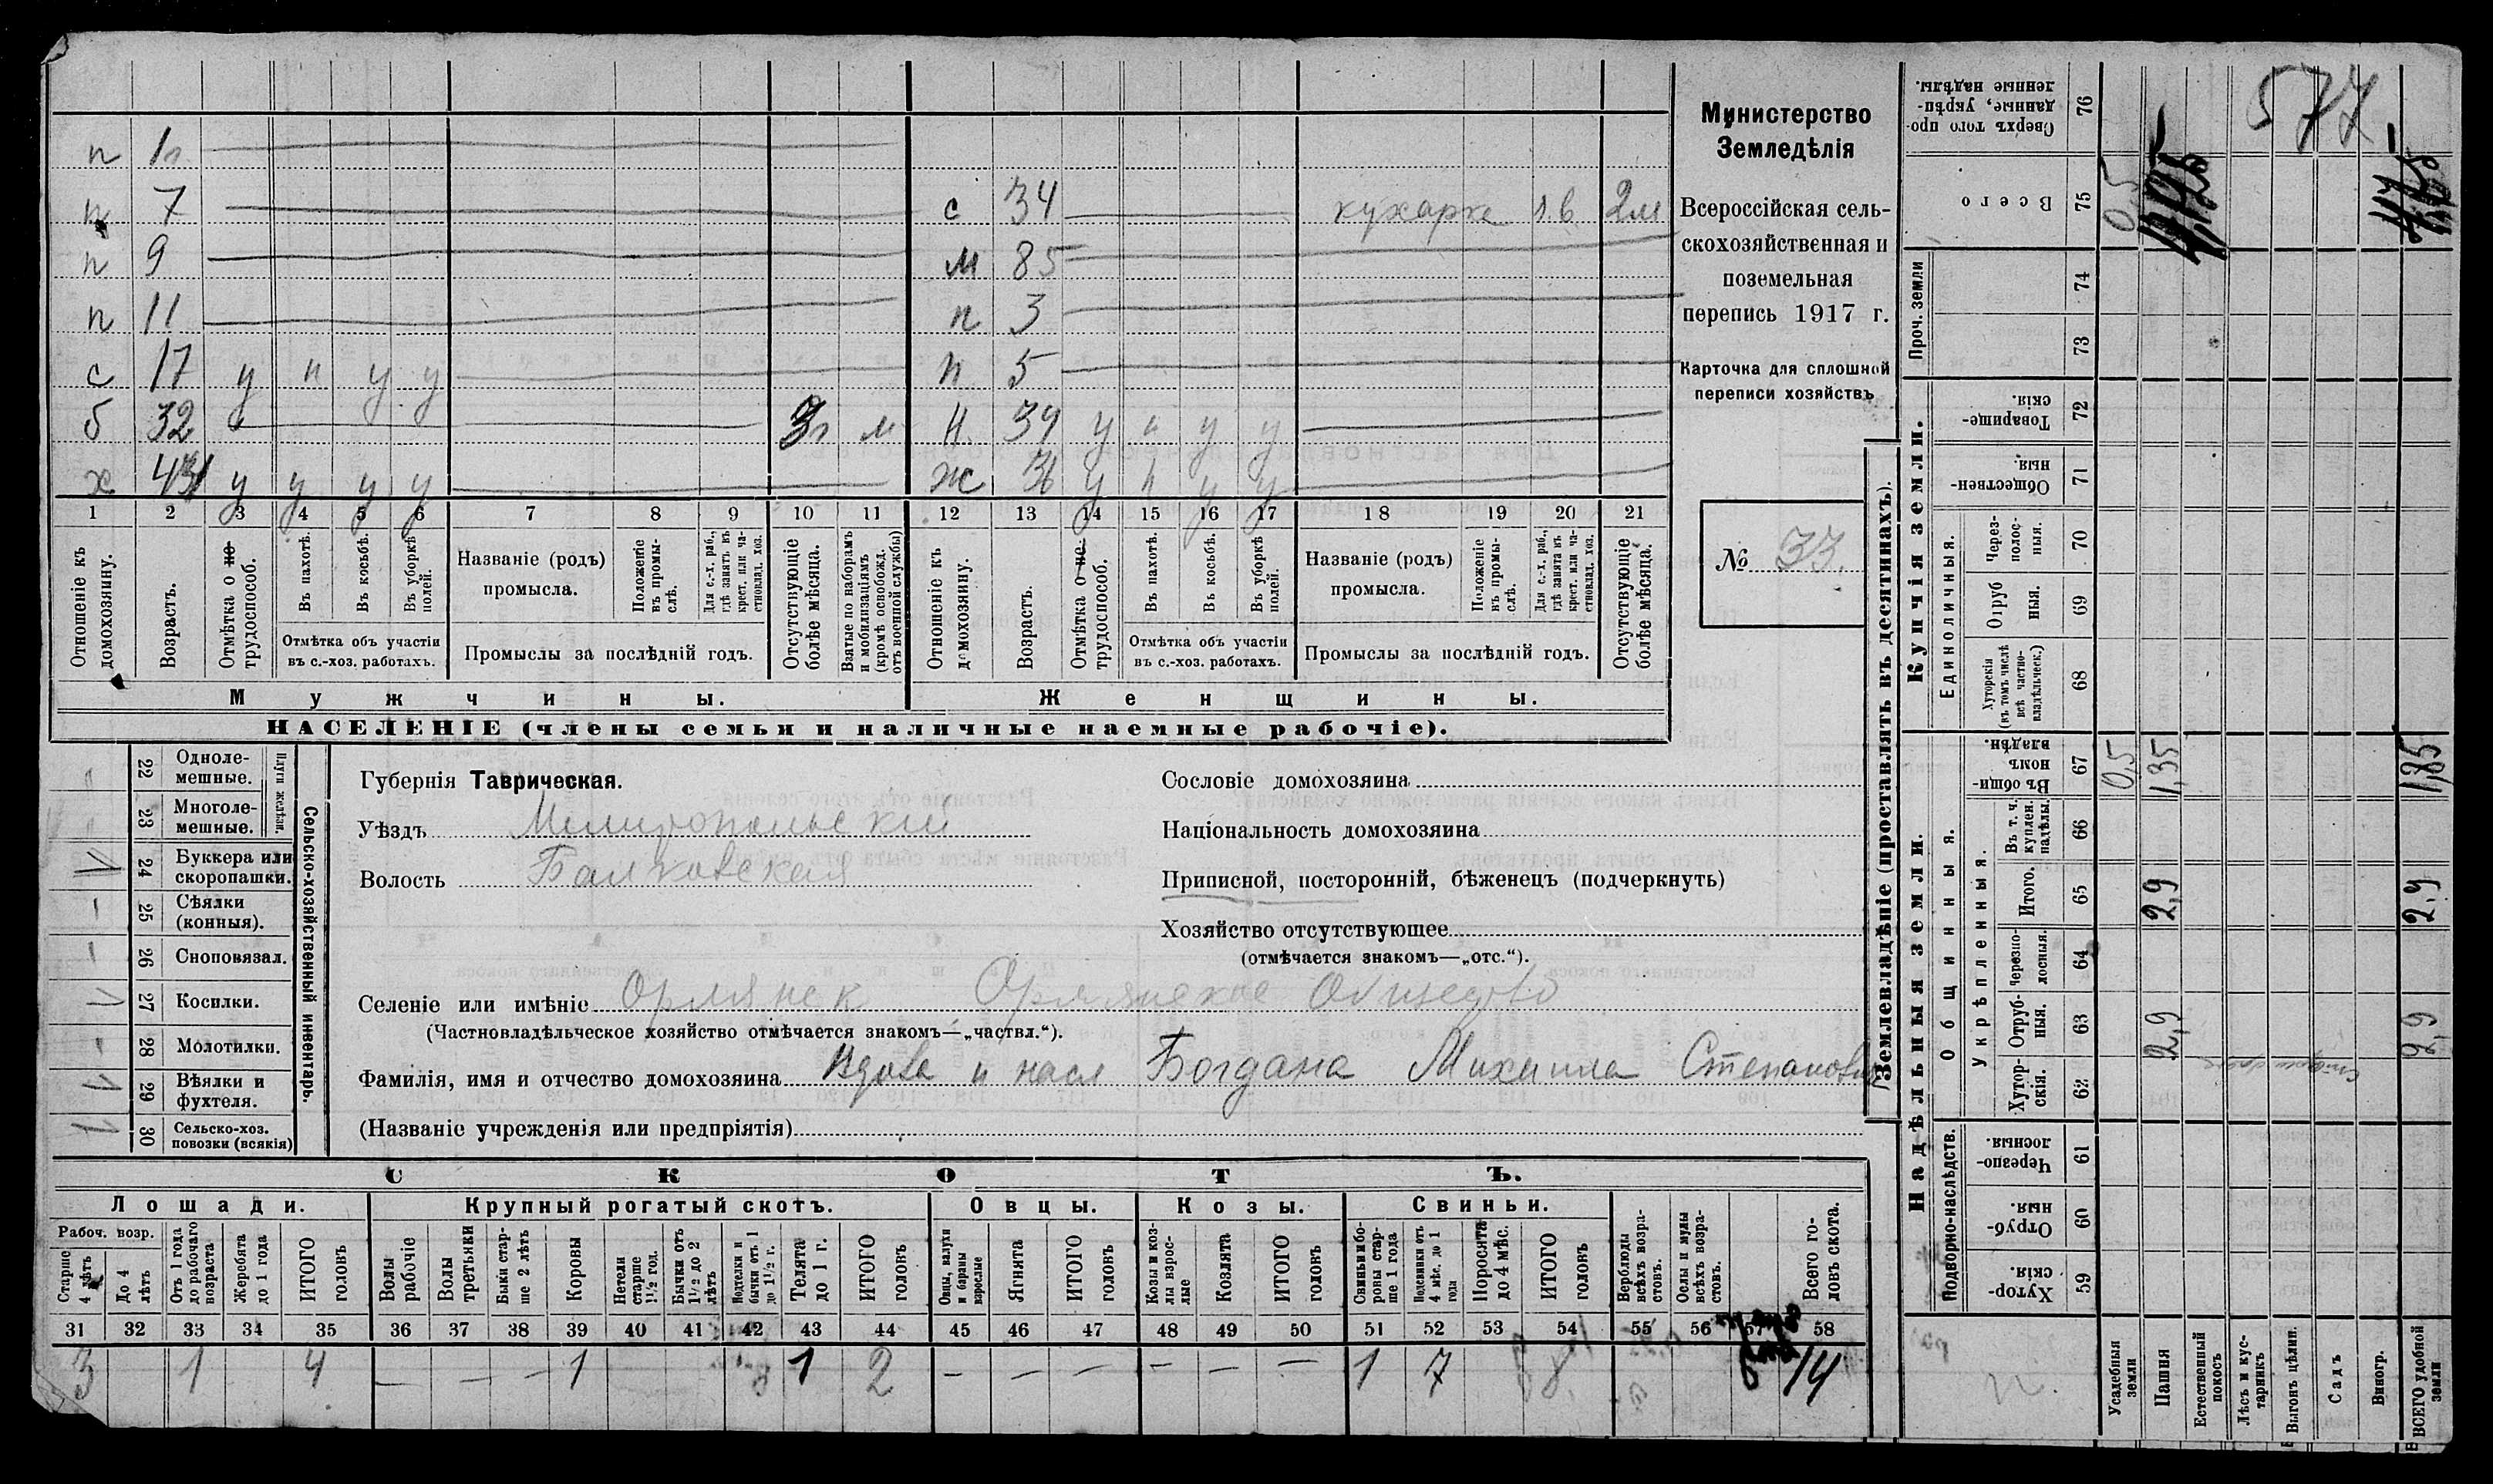 п 1
п 7 с 34 кухарке 2м
п 9 м 85
п 11 п 3
с 17 у н у у п 5
б 32 м 39 у н у у
х у у у у ж 36 у н у у
1 2 3 4 5 6 7 8 9 10 11 12 13 14 15 16 17 18 19 20 21
Отношеніе къ домохозяину.
Возрастъ.
Отмѣтка о не трудоспособ.
Въ пахотѣ.
Въ косьбѣ.
Въ уборкѣ полей.
Отмѣтка объ участіи въ с.-хоз. работахъ.
Названіе (родъ) промысла.
Положеніе въ промыслѣ.
Для с.-х. раб., гдѣ занятъ въ крест. или частновлад. хоз.
Промыслы за послѣдній годъ.
Отсутствующіе болѣе мѣсяца.
Взятые по наборамъ и мобилизаціямъ (кромѣ освобожд. отъ военной службы)
Отношеніе къ домохозяину.
Возрастъ.
Отмѣтка о не трудоспособ.
Въ пахотѣ.
Въ косьбѣ.
Въ уборкѣ полей.
Отмѣтка объ участіи въ с.-хоз. работахъ.
Названіе (родъ) промысла.
Положеніе въ промыслѣ.
Для с.-х. раб., гдѣ занята въ крест. или частновлад. хоз.
Промыслы за послѣдній годъ.
Отсутствующіе болѣе мѣсяца.
Мужчины.
Женщины.
НАСЕЛЕНІЕ (члены семьи и наличные наемные рабочіе).
Министерство
Земледѣлія
Всероссійская сель-
скохозяйственная и
поземельная
перепись 1917 г.
Карточка для сплошной
переписи хозяйствъ
№ 33.
Сельско-хозяйственный инвентарь.
Плуги желѣзн.
22 Одноле-мешные.
23 Многоле-мешные.
24 Буккера или скоропашки.
25 Сѣялки (конныя).
26 Сноповязал.
27 Косилки.
28 Молотилки.
29 Вѣялки и фухтеля.
30 Сельско-хоз. повозки (всякія)
Губернія Таврическая.
Уѣздъ Мелитопольскій
Волость Балковская
Сословіе домохозяина
Національность домохозяина
Приписной, посторонній, бѣженецъ (подчеркнуть)
Хозяйство отсутствующее
(отмѣчается знакомъ—„отс.“).
Селеніе или имѣніе Орлянск Орлянское Общество
(Частновладѣльческое хозяйство отмѣчается знакомъ—„частвл.“).
Фамилія, имя и отчество домохозяина Вдова и насл Богдана Михаила Степанович
(Названіе учрежденія или предпріятія)
СКОТЪ.
Лошади.
Крупный рогатый скотъ.
Овцы.
Козы.
Свиньи.
Рабоч. возр.
Старше 4 лѣтъ
До 4 лѣтъ
Отъ 1 года до рабочаго возраста
Жеребята до 1 года
ИТОГО головъ
Волы рабочіе
Волы третьяки
Быки старше 2 лѣтъ
Коровы
Нетели старше 1½ год.
Бычки отъ 1½ до 2 лѣтъ
Подтелки и бычки отъ 1 до 1½ г.
Телята до 1 г.
ИТОГО головъ
Овцы, валухи и бараны взрослые
Ягнята
ИТОГО головъ
Козы и козлы взрослые
Козлята
ИТОГО головъ
Свиньи и боровы старше 1 года
Подсвинки отъ 4 мѣс. до 1 года
Поросята до 4 мѣс.
ИТОГО головъ
Верблюды всѣхъ возрастовъ.
Ослы и мулы всѣхъ возрастовъ.
Всего головъ скота.
31 32 33 34 35 36 37 38 39 40 41 42 43 44 45 46 47 48 49 50 51 52 53 54 55 56 57 58
3 1 4 — — — 1 1 2 — — — — — — 1 7 8 14
Землевладѣніе (проставлять въ десятинахъ).
577
Сверхъ того проданные, укрѣпленные надѣлы. 76
Всего 75 0,5
Проч. земли 74
73
Купчія земли.
Товарищескія. 72
Общественныя. 71
Единоличныя.
Черезполосныя. 70
Отрубныя. 69
Хуторскія (въ томъ числѣ всѣ частновладѣльческ.) 68
Надѣльныя земли.
Общинныя.
Въ общинномъ владѣн. 67 0,5 1,35
Укрѣпленныя.
Въ т. ч. куплен. надѣлы. 66
Итого. 65 2,9 2,9
Черезполосныя. 64
Отрубныя. 63 2,9 2,9
Хуторскія. 62
Подворно-наслѣдств.
Черезполосныя. 61
Отрубныя. 60
Хуторскія. 59
Усадебныя земли
Пашня
Естественный покосъ
Лѣсъ и кустарникъ
Выгонъ цѣлин.
Садъ
Виногр.
ВСЕГО удобной земли